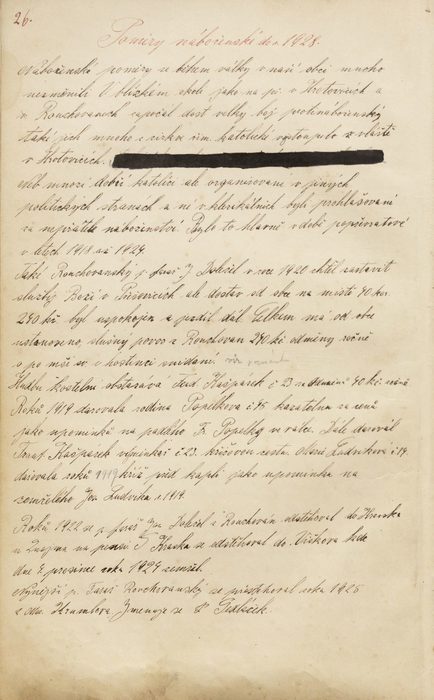 26.
Poměry náboženské do r. 1928.
Náboženské poměry se během války v naší obci mnoho
nezměnily. V blízkém okolí jako na př. v Hrotovicích a
v Rouchovanech započal dost velký boj protináboženský
také jich mnoho z církve řím. katolické vystoupilo zvláště
v Hrotovicích.
mnozí dobří katolíci ale organisovaní v jiných
politických stranách a ne v klerikálních byli prohlašovani
za nepřátele náboženství. Bylo to hlavně v době popřevratové
v letech 1918 až 1924.
Také Rouchovanský p. farář J. Dohčil v roce 1920 chtěl zastavit
služby Boží v ale dostav od obce na místo 70 kor
240 kč byl uspokojen a jezdil dál. Celkem má od obce
ustanoveno, slušný povoz z Rouchovan 240 kč odměny ročně
a po mši sv. v hostinci snídaní
Hudbu kostelní obstarává Ferd. Kašpárek č. 23 za 40 kč ročně
Roku 1919 darovala rodina Popelkova č. 45 kazatelnu za cenu
jako upomínku na padlého Fr. Popelky ve válce. Dále daroval
Josef Kašpárek výminkář č. 23. křížovou cestu. Ludvíková č. 14
darovala roku 1919 kříž před kaplí jako upomínku na
zemřelého Jan Ludvíka r. 1919.
Roku 1922 se p. farář Jan Dohčil z Rouchovan odstěhoval do
u Znojma na pensi. Z se odstěhoval do kde
dne 8 prosince roku 1927 zemřel.
Nynější p. Farář Rouchovanský se přistěhoval roku 1925
z Jmenuje se P.